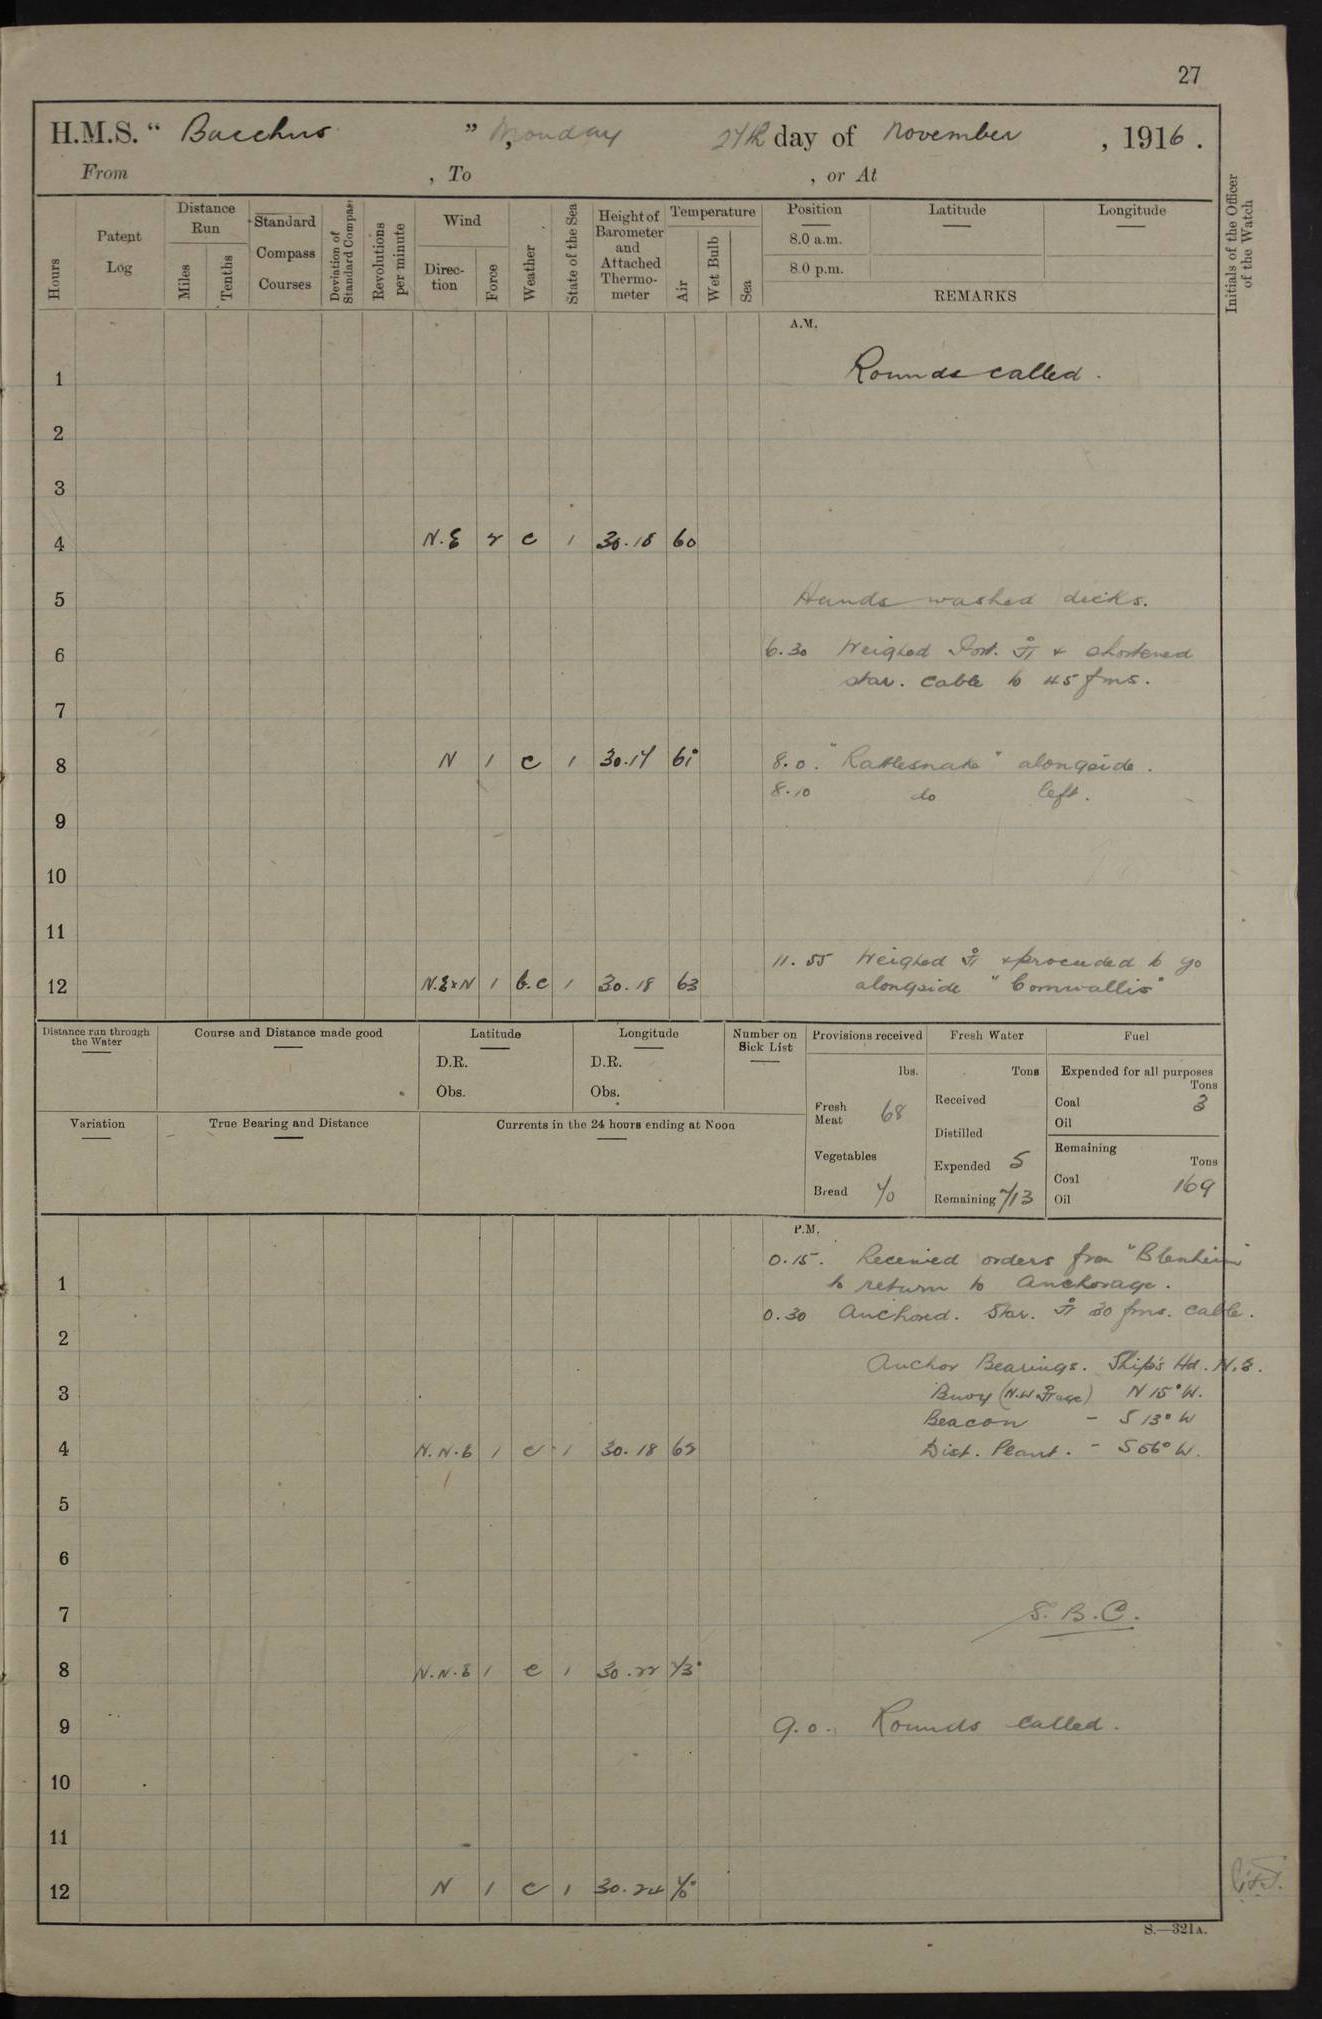 27
H.M.S. "Bacchus", Monday 27th day of November, 1916.
From , To , or At
Hours
Patent Log
Distance Run
Miles
Tenths
Standard Compass Courses
Deviation of Standard Compass
Revolutions per minute
Wind
Direction
Force
Weather
State of the Sea
Height of Barometer and Attached Thermometer
Temperature
Air
Wet Bulb
Sea
Position
Latitude
Longitude
8.0 a.m.
8.0 p.m.
REMARKS
Initials of the Officer of the Watch
A.M.
1 Rounds called.
2
3
4 N.E 2 c 1 30.18 60
5 Hands washed decks.
6 6.30 Weighed Port. ⚓ & shortened
star. cable to 45 fms.
7
8 N 1 c 1 30.17 61° 8.0. "Rattlesnake" alongside.
8.10 do left.
9
10
11
11.55 Weighed ⚓ & proceeded to go
12 N.E x N 1 b.c 1 30.18 63 alongside "Cornwallis"
Distance run through the Water
Course and Distance made good
Latitude
D.R.
Obs.
Longitude
D.R.
Obs.
Number on Sick List
Provisions received
lbs.
Fresh Meat 68
Vegetables
Bread 70
Fresh Water
Tons
Received
Distilled
Expended 5
Remaining 713
Fuel
Expended for all purposes
Tons
Coal 3
Oil
Remaining
Tons
Coal 169
Oil
Variation
True Bearing and Distance
Currents in the 24 hours ending at Noon
P.M.
0.15. Received orders from "Blenheim"
1 to return to Anchorage.
0.30 Anchored. Star. ⚓ 30 fms. cable.
2
Anchor Bearings. Ship's Hd. N.E.
3 Buoy (N.W ⚓age) N 15° W.
Beacon - S 13° W
4 N.N.E 1 c 1 30.18 62 Dist. Plant. - S 66° W.
5
6
7 S.B.C.
8 N.N.E 1 c 1 30.22 73°
9 9.0. Rounds called.
10
11
12 N 1 c 1 30.24 70°
S.—321A.